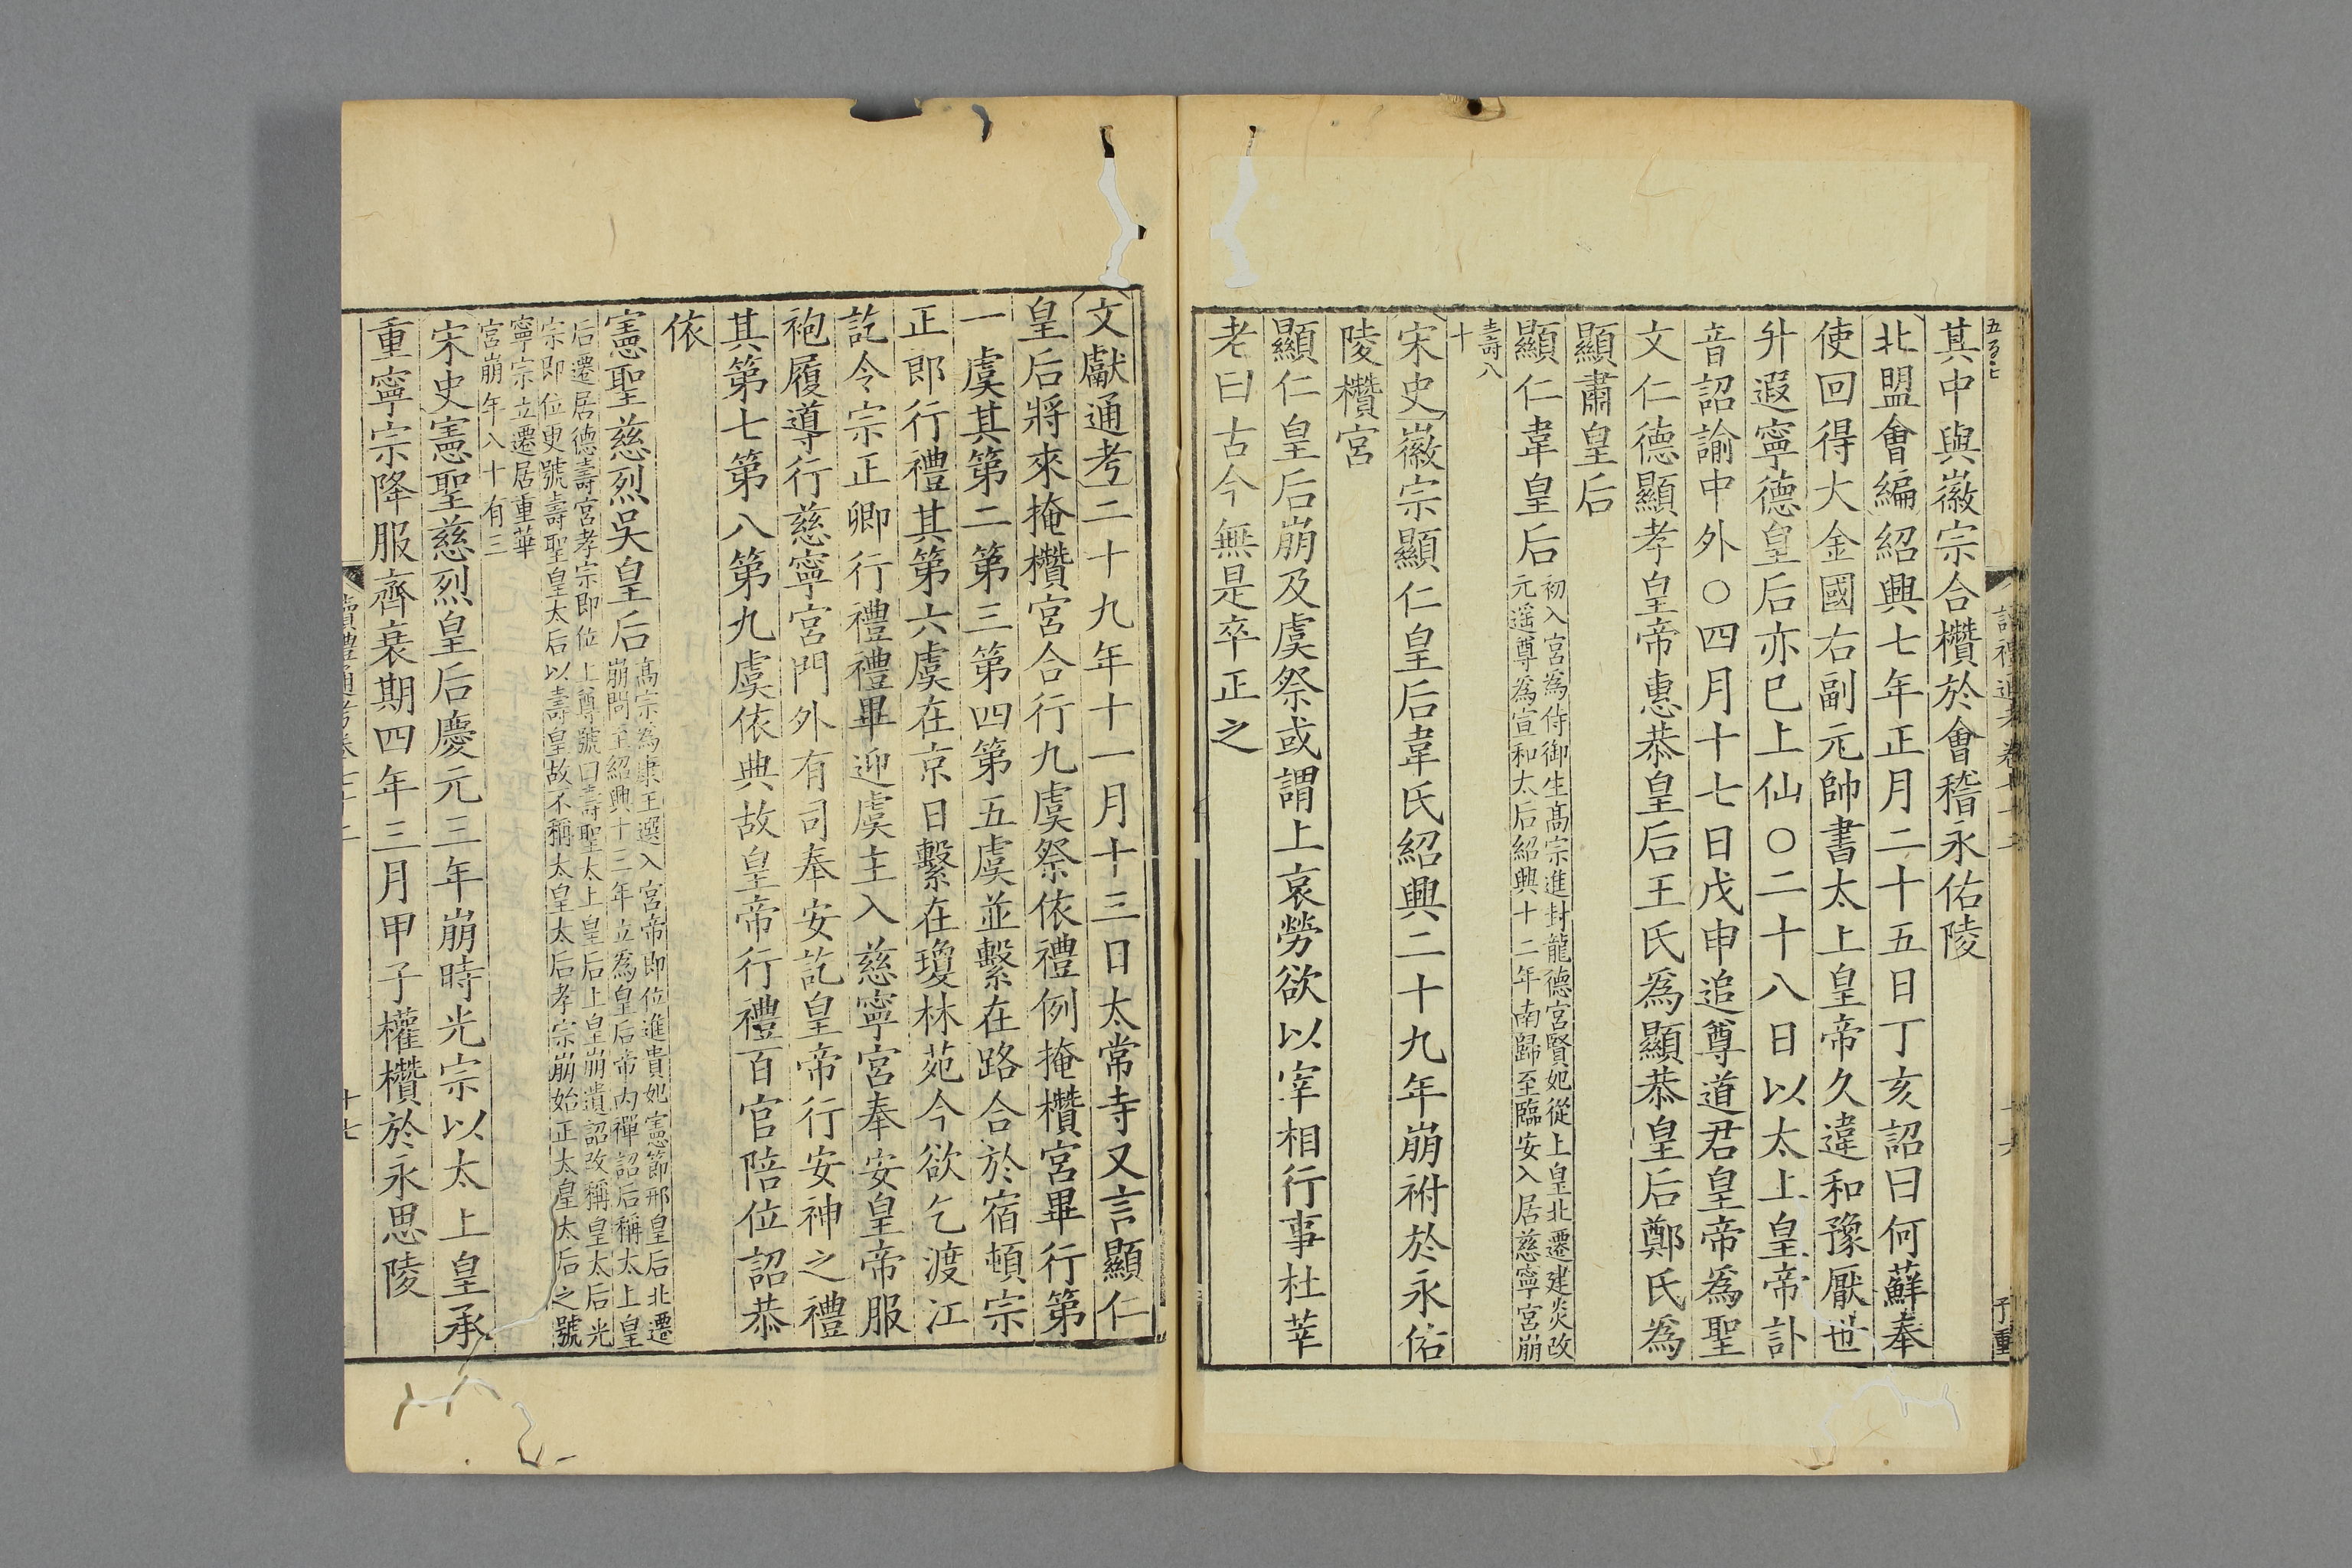 其中與徽宗合欑於會稽永佑陵
北盟會編紹興七年正月二十五日丁亥詔曰何蘚奉
使回得大金國右副元帥書太上皇帝久違和豫厭世
升遐寧德皇后亦已上仙○二十八日以太上皇帝訃
音詔諭中外○四月十七日戊申追尊道君皇帝爲聖
文仁德顯孝皇帝惠恭皇后王氏爲顯恭皇后鄭氏爲
顯肅皇后
顯仁韋皇后
初入宮為侍御生髙宗進封龍德宮賢妃從上皇北遷建炎改
元遥尊為宣和太后紹興十二年南歸至臨安入居慈寧宮崩
壽八
十
宋史徽宗顯仁皇后韋氏紹興二十九年崩祔於永佑
陵欑宮
顯仁皇后崩及虞祭或謂上哀勞欲以宰相行事杜莘
老曰古今無是卒正之
文獻通考二十九年十一月十三日太常寺又言顯仁
皇后將來掩欑宮合行九虞祭依禮例掩欑宮畢行第
一虞其第二第三第四第五虞並繫在路合於宿頓宗
正郎行禮其第六虞在京日繫在瓊林苑今欲乞渡江
訖令宗正卿行禮禮畢迎虞主入慈寧宮奉安皇帝服
袍履導行慈寧宮門外有司奉安訖皇帝行安神之禮
其第七第八第九虞依典故皇帝行禮百官陪位詔恭
依
憲聖慈烈吳皇后
髙宗為康王選入宮帝即位進貴妃憲節邢皇后北遷
崩問至紹興十三年立為皇后帝內禪詔后稱太上皇
后遷居德壽宮孝宗即位上尊號曰壽聖太上皇后上皇崩遺詔改稱皇太后光
宗即位更號壽聖皇太后以壽皇故不稱太皇太后孝宗崩始正太皇太后之號
寧宗立遷居重華
宮崩年八十有三
宋史憲聖慈烈皇后慶元三年崩時光宗以太上皇承
重寧宗降服齊衰期四年三月甲子權欑於永思陵
讀禮通考卷
十七